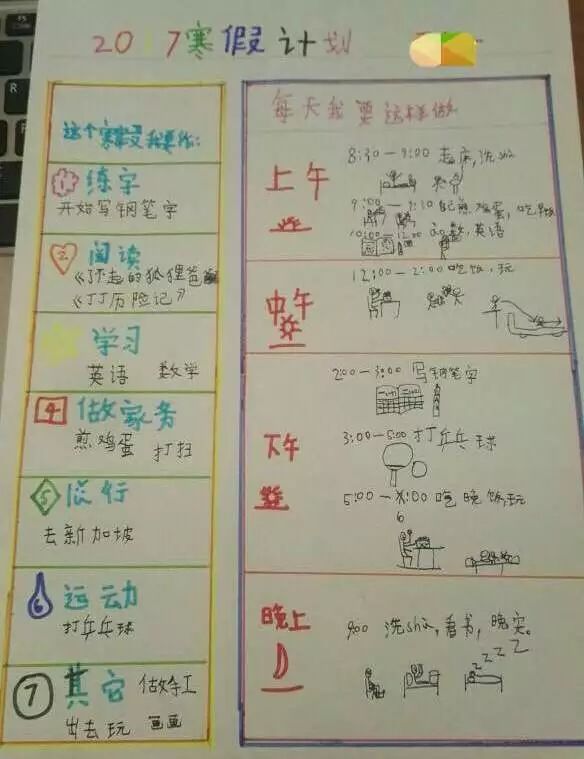 2017寒假计划
这个寒假我要做:
1 练字
开始写钢笔字
2 阅读
《了不起的狐狸爸爸
《丁丁历险记》
学习
英语 数学
4 做家务
煎鸡蛋 打扫
5 旅行
去新加坡
6 运动
打乒乓球
7 其它 做手工
出去玩 画画
每天我要这样做
上午
8:30-9:00 起床,洗
9:00-9:30自己煎鸡蛋,吃早
10:00-12:00 数,英语
中午
12:00-2:00吃饭,玩
下午
2:00-3:00 写钢笔字
3:00-5:00打乒乓球
5:00-8:00吃晚饭,玩
6
晚上
9:00 洗shù,看书,晚安。
zzzz